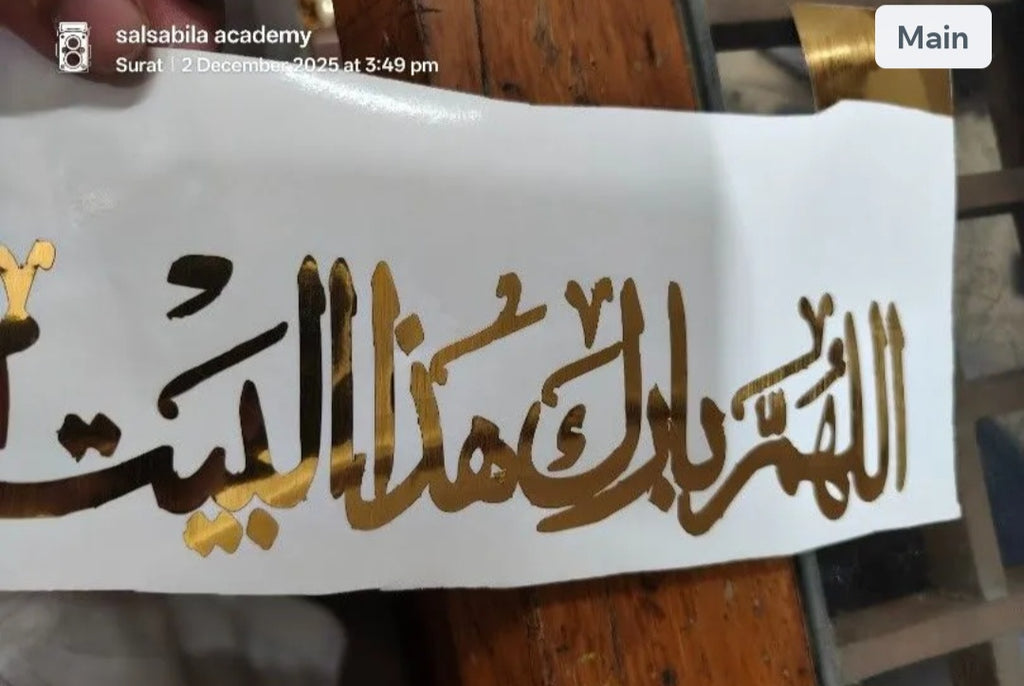 salsabila academy
Surat | 2 December 2025 at 3:49 pm
Main
اللهم بارك هذا البيت